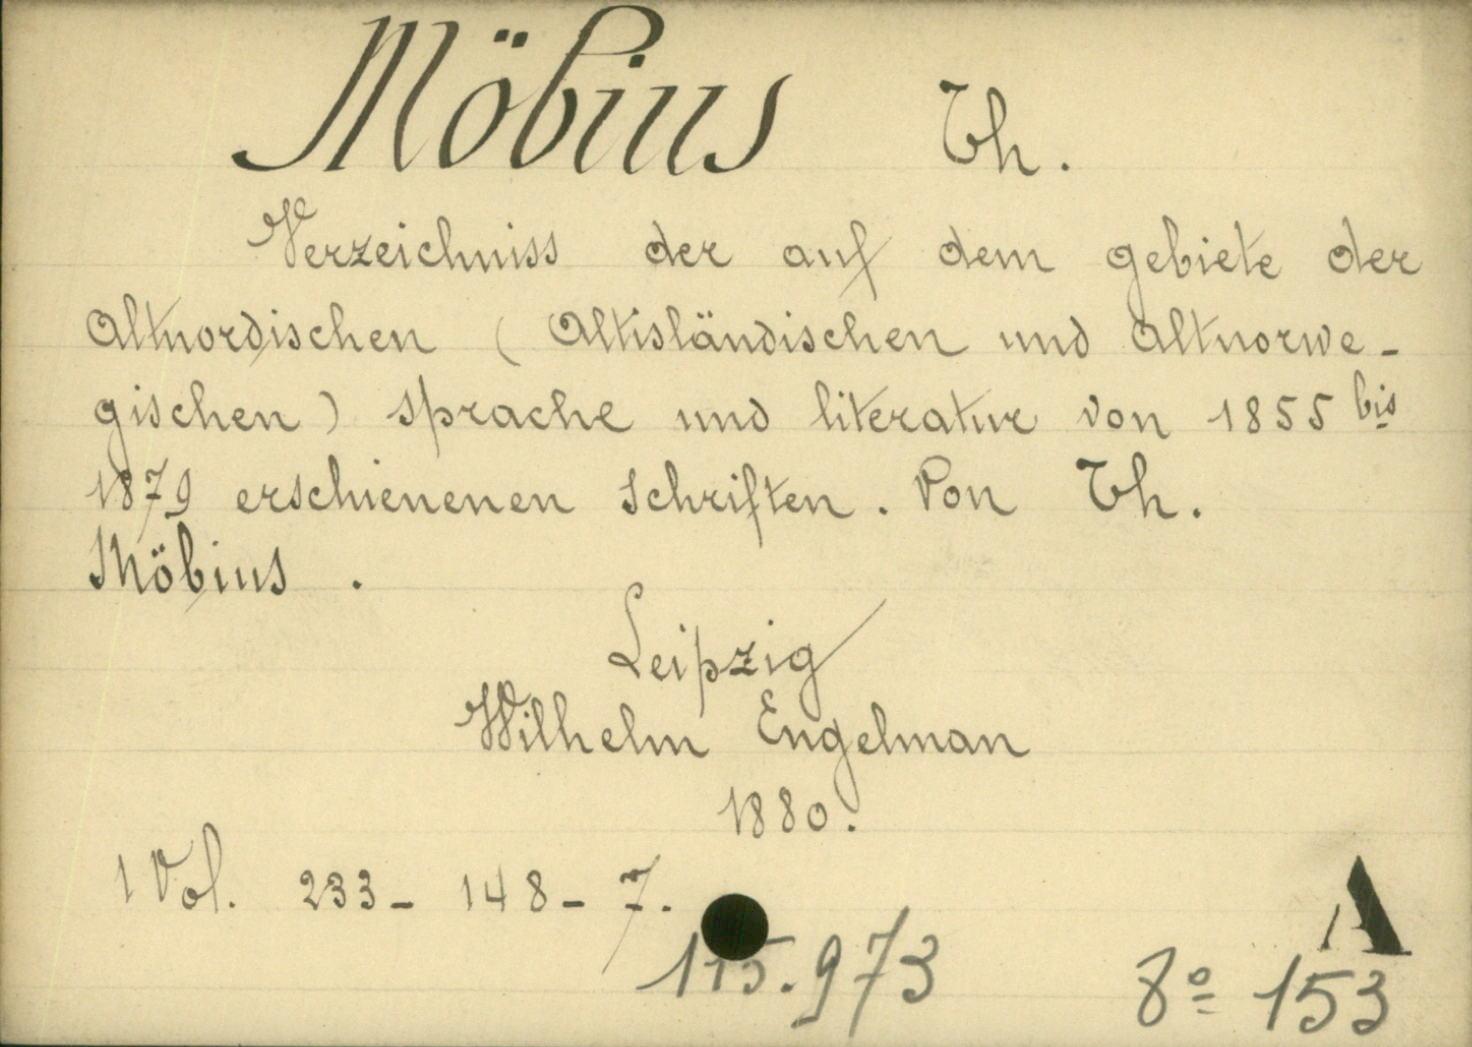 Möbius Th.
Verzeichniss der auf dem gebiete der
Altnordischen (Altisländischen und Altnorwe-
gischen) sprache und literatur von 1855 bis
1879 erschienenen schriften. Von Th.
Möbius.
Leipzig
Wilhelm Engelman
1880.
1 Vol. 233- 148- 7.
A
115.973 8º 153